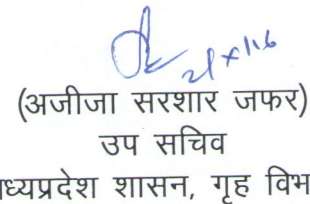 21/X/16
(अजीजा सरशार जफर)
उप सचिव
मध्यप्रदेश शासन, गृह विभ